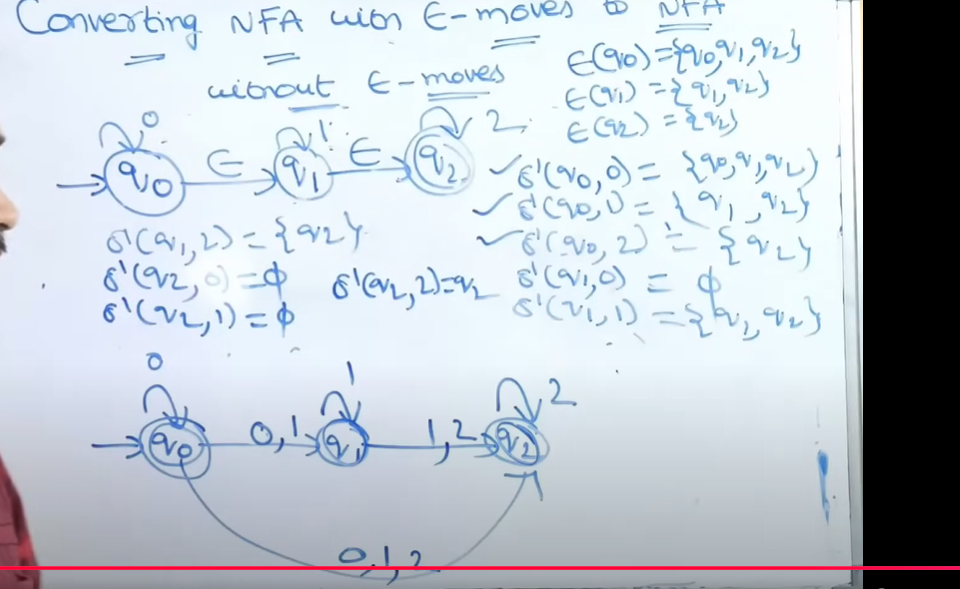 Converting NFA with ∈-moves to NFA
without ∈-moves
∈(q0)={q0,q1,q2}
∈(q1)={q1,q2}
∈(q2)={q2}
0 1 2
q0 ∈ q1 ∈ q2
δ'(q0,0)= {q0,q1,q2}
δ'(q0,1)= {q1,q2}
δ'(q0,2)= {q2}
δ'(q1,2)={q2}
δ'(q2,0)=ϕ δ'(q2,2)=q2 δ'(q1,0) = ϕ
δ'(q2,1)=ϕ δ'(q1,1) ={q1,q2}
0 1 2
q0 0,1 q1 1,2 q2
0,1,2